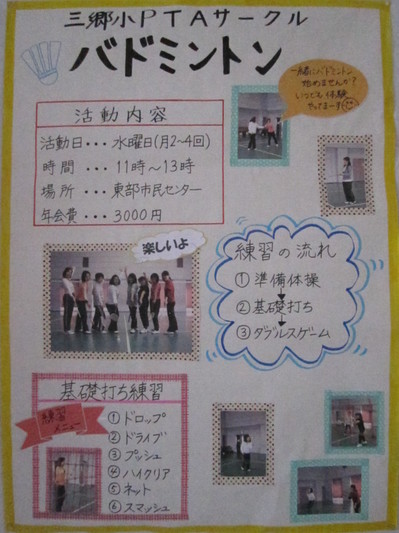 三郷小PTAサークル
バドミントン
一緒にバドミントン
始めませんか?
いつでも体験
やってまーす
活動内容
活動日・・・水曜日(月2~4回)
時間・・・11時~13時
場所・・・東部市民センター
年会費・・・3000円
楽しいよ
練習の流れ
①準備体操
②基礎打ち
③ダブルスゲーム
基礎打ち練習
練習
メニュー
①ドロップ
②ドライブ
③プッシュ
④ハイクリア
⑤ネット
⑥スマッシュ